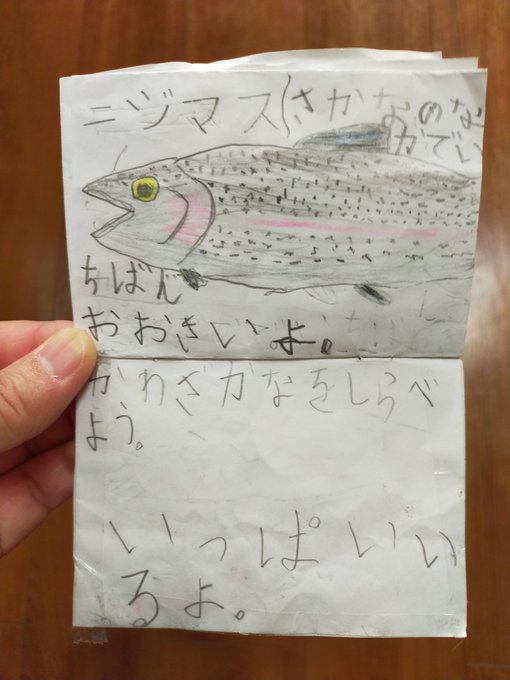 ニヅマス(さかなのな
かでい
ちばん
おおきいよ。
かわざかなをしらべ
よう。
いっぱいい
るよ。